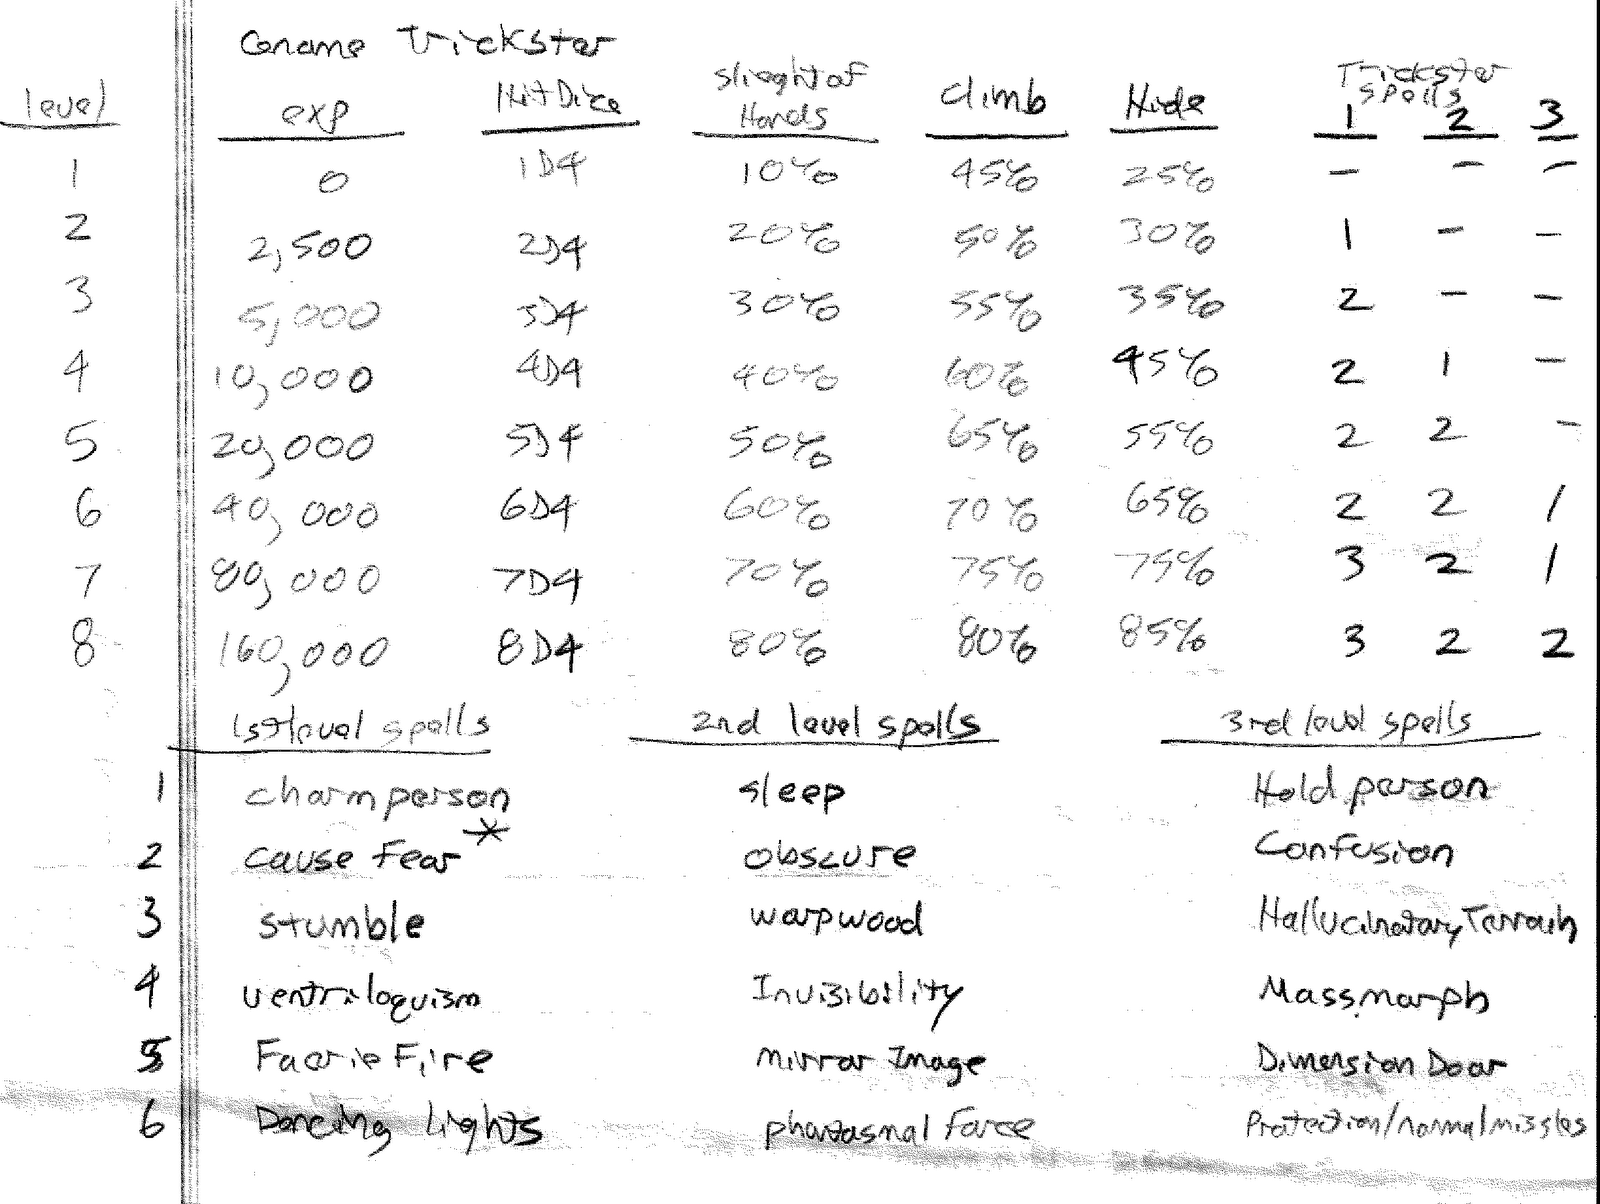 Coname Trickster
level exp HitDice Slieght of Hands Climb Hide Trickster Spells 1 2 3
1 0 1D4 10% 45% 25% - - -
2 2,500 2D4 20% 50% 30% 1 - -
3 5,000 3D4 30% 55% 35% 2 - -
4 10,000 4D4 40% 60% 45% 2 1 -
5 20,000 5D4 50% 65% 55% 2 2 -
6 40,000 6D4 60% 70% 65% 2 2 1
7 80,000 7D4 70% 75% 75% 3 2 1
8 160,000 8D4 80% 80% 85% 3 2 2
1st level spells 2nd level spells 3rd level spells
1 charm person sleep Hold person
2 cause Fear* obscure Confusion
3 stumble warp wood Hallucinatary Terrain
4 ventriloquism Invisibility Massmorph
5 Faerie Fire mirror Image Dimension Door
6 Dancing Lights phantasmal Force Protection/normal missles